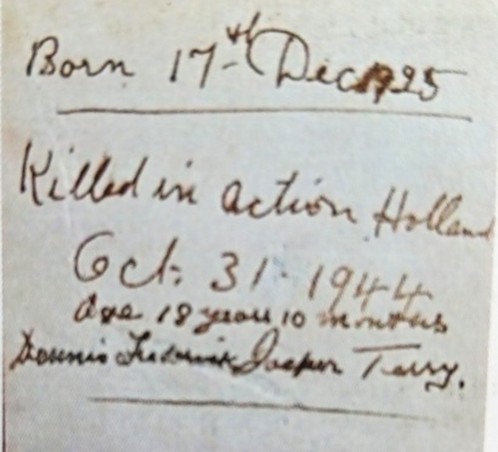 Born 17th Dec 1925
Killed in action Holland
Oct. 31 1944
age 18 years 10 months
Dennis Frederick Jasper Terry.